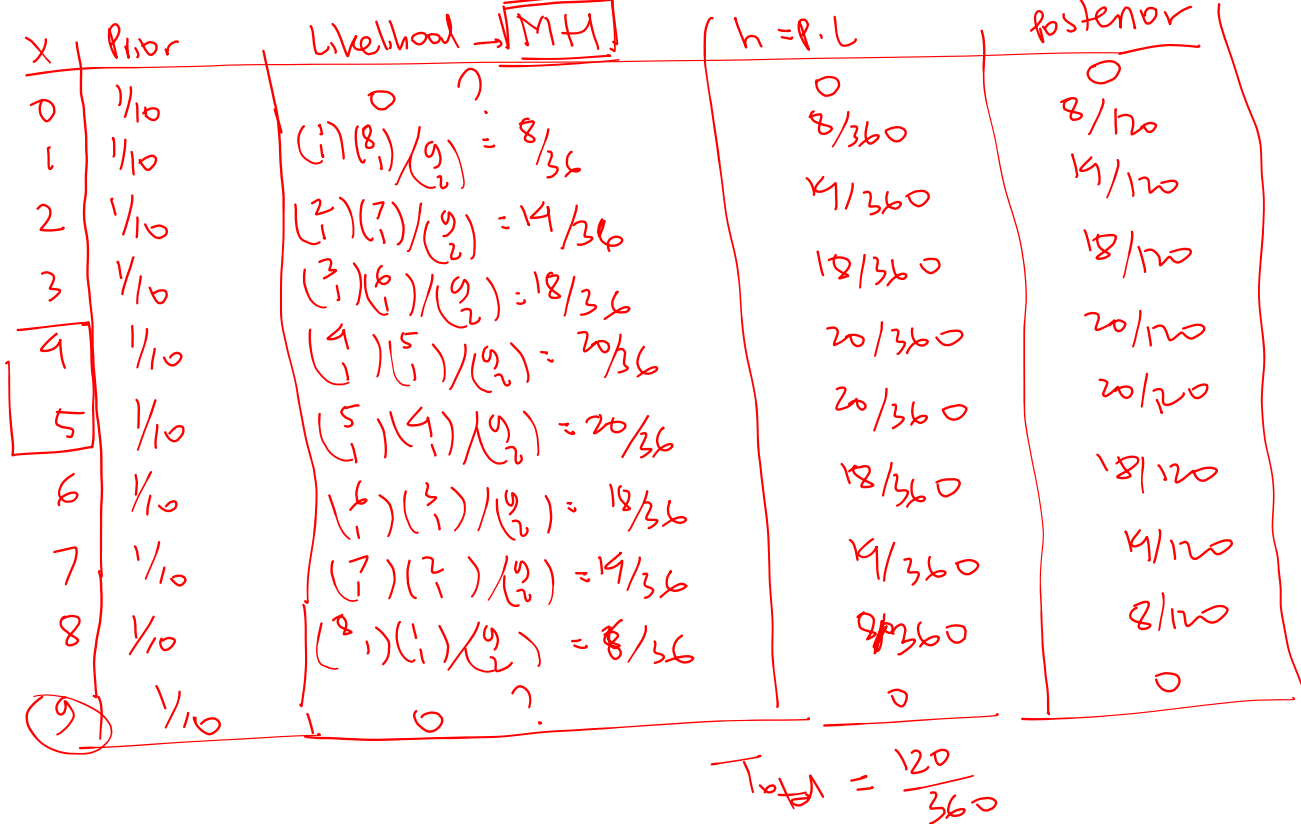 X Prior Likelihood → MH h = P.L Posterior
0 1/10 0 ? 0 0
1 1/10 (1 1)(8 1)/(9 2) = 8/36 8/360 8/120
2 1/10 (2 1)(7 1)/(9 2) = 14/36 14/360 14/120
3 1/10 (3 1)(6 1)/(9 2) = 18/36 18/360 18/120
4 1/10 (4 1)(5 1)/(9 2) = 20/36 20/360 20/120
5 1/10 (5 1)(4 1)/(9 2) = 20/36 20/360 20/120
6 1/10 (6 1)(3 1)/(9 2) = 18/36 18/360 18/120
7 1/10 (7 1)(2 1)/(9 2) = 14/36 14/360 14/120
8 1/10 (8 1)(1 1)/(9 2) = 8/36 8/360 8/120
9 1/10 0 ? 0 0
Total = 120/360